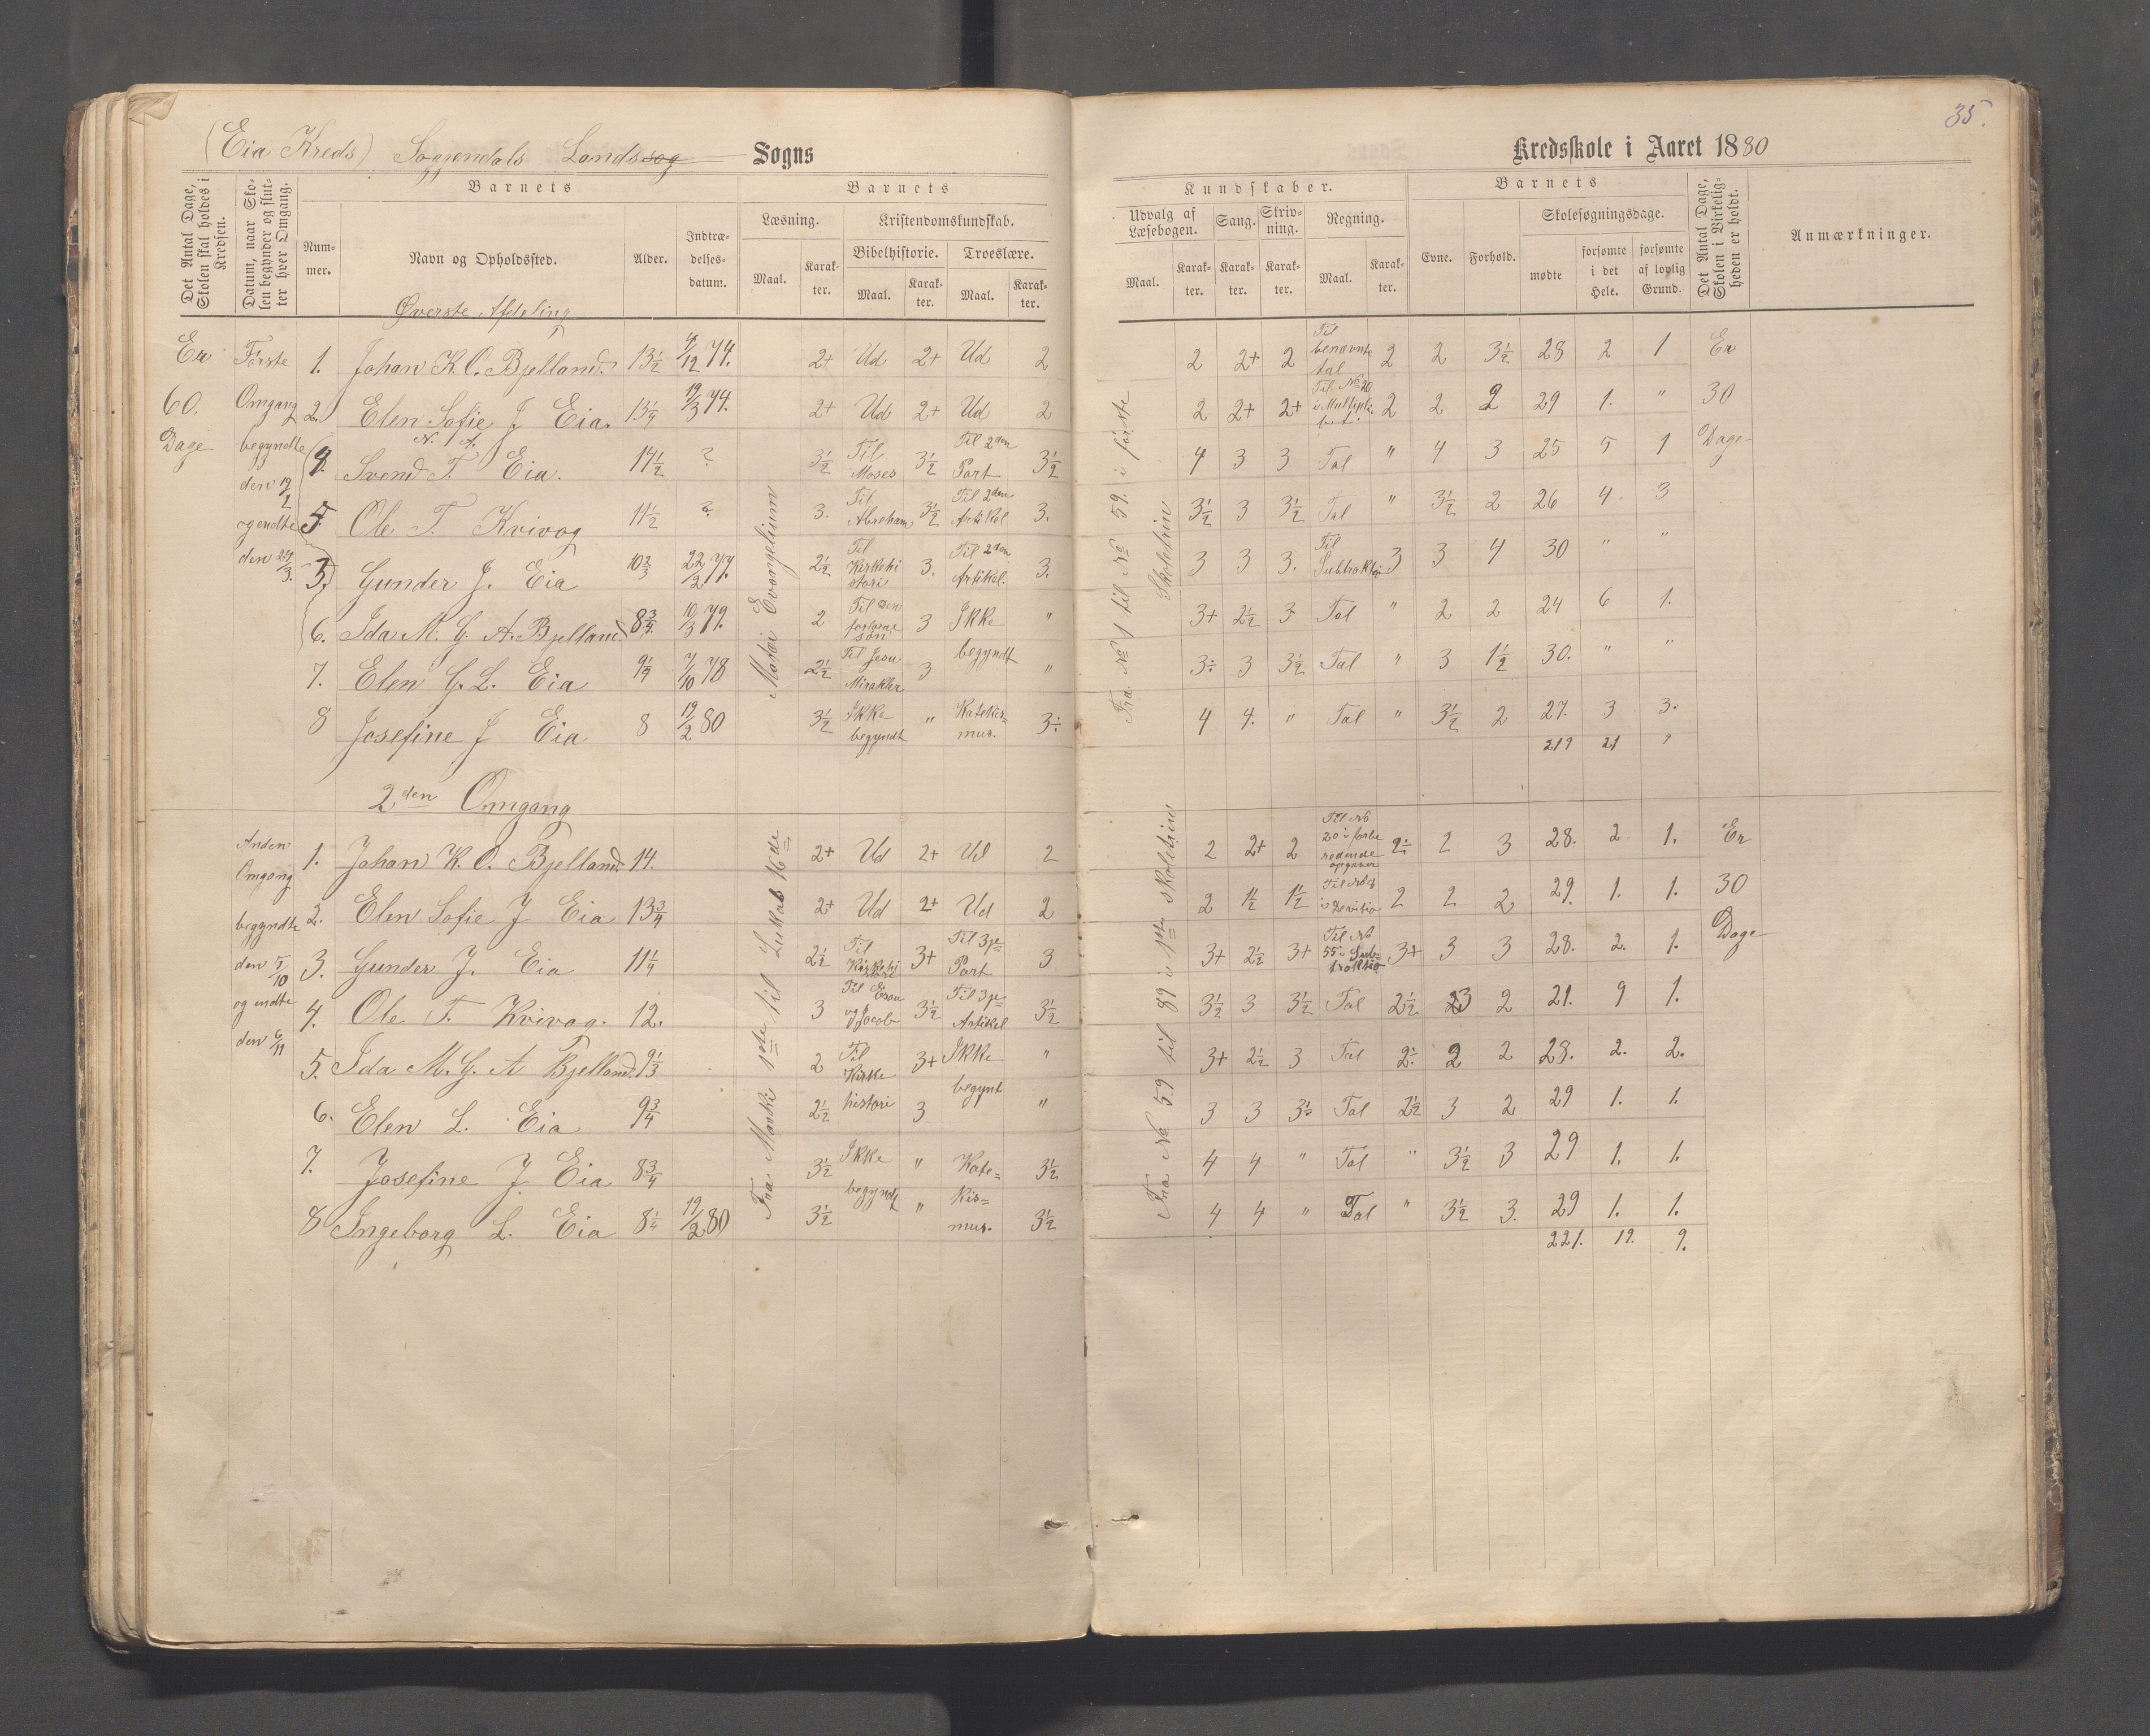 (Eia Kreds) Soggendals Landssog Sogns
Det Antal Dage, Skolen skal holdes i Kredsen.
Datum, naar Skolen begynder og slutter hver Omgang.
Barnets
Nummer.
Navn og Opholdssted.
Alder.
Indtrædelsesdatum.
Barnets
Læsning.
Kristendomskundskab.
Bibelhistorie.
Troeslære.
Maal.
Karakter.
Maal.
Karakter.
Maal.
Karakter.
Øverste Afdeling
Er 60. Dage
Første Omgang begyndte den 19/2 og endte den 24/3.
Matæi Evangelium
1. Johan K. O. Bjelland. 13½ 4/12 74. 2+ Ud 2+ Ud 2
2. Elen Sofie J Eia. 13¼ 19/3 74. 2+ Ud 2+ Ud 2
N. A.
4. Svend T. Eia. 14½ ? 3½ Til Moses 3½ Til 2den Part 3½
5 Ole T. Kvivog 11½ ? 3. Til Abraham 3½ Til 2den Artikel 3.
3. Gunder J. Eia 10⅔ 22/2 77. 2½ Til Kirkehistori 3. Til 2den Artikel. 3.
6. Ida M. G. A. Bjelland. 8¾ 10/3 79. 2 Til den forlorne søn 3 Ikke "
7. Elen G. L. Eia 9¼ 7/10 78 2½ Til Jesu Mirakler 3 begyndt "
8 Josefine J Eia 8 19/2 80 3½ Ikke begyndt " Katekismus. 3÷
2den Omgang
Anden Omgang begyndte den 5/10 og endte den 6/11
Fra Marki 1ste til Lukas 16de
1. Johan K. O. Bjelland. 14. 2+ Ud 2+ Ud 2
2. Elen Sofie J Eia 13¾ 2+ Ud 2+ Ud 2
3. Gunder J. Eia 11¼ 2½ Til Kirkehi 3+ Til 3je Part 3
4. Ole T. Kvivog. 12. 3 Til Esau og Jacob 3½ Til 3je Artikel 3½
5. Ida M. G. A Bjelland. 9⅓ 2 Til Kirke 3+ Ikke "
6. Elen L. Eia 9¾ 2½ histori 3 begynt "
7. Josefine J Eia 8¾ 3½ Ikke " Kate= 3½
8 Ingeborg L. Eia 8¼ 19/2 80 3½ begyndt " kismus. 3½
35.
Kredsskole i Aaret 1880
Kundskaber.
Udvalg af Læsebogen.
Sang.
Skrivning.
Regning.
Maal.
Karakter.
Karakter.
Karakter.
Maal.
Karakter.
Barnets
Evne.
Forhold.
Skolesøgningsdage.
mødte
forsømte i det Hele.
forsømte af lovlig Grund.
Det Antal Dage, Skolen i Virkeligheden er holdt.
Anmærkninger.
Fra No 1 til No 59. i første Skoletrin
2 2+ 2 Til benævnte tal 2 2 3½ 28 2 1 Er
2 2+ 2+ Til No 10 i Multipli. 2 2 2 29 1. " 30
4 3 3. Tal " 4 3 25 5 1 Dage
3½ 3 3½ Tal " 3½ 2 26 4. 3
3 3 3. Til Subtraktion 3 3 4 30 " "
3+ 2½ 3 Tal " 2 2 24 6 1.
3÷ 3 3½ Tal " 3 1½ 30. " "
4 4. " Tal " 3½ 2 27. 3 3.
219 21 9
Fra No 59 til 89 i 1ste skoletrin
2 2+ 2 Til No 20 i første opgaver 2÷ 2 3 28. 2. 1. Er
2 1½ 1½ Til No 8 i Devisio 2 2 2 29. 1. 1. 30
3+ 2½ 3+ Til No 55 i Subtraktio 3+ 3 3 28. 2. 1. Dage
3½ 3 3½ Tal 2½ 3 2 21. 9 1.
3+ 2½ 3 Tal 2÷ 2 2 28. 2. 2.
3 3 3½ Tal 2½ 3 2 29 1. 1.
4 4 " Tal " 3½ 3 29 1. 1.
4 4 " Tal " 3½ 3. 29 1. 1.
221. 19. 9.